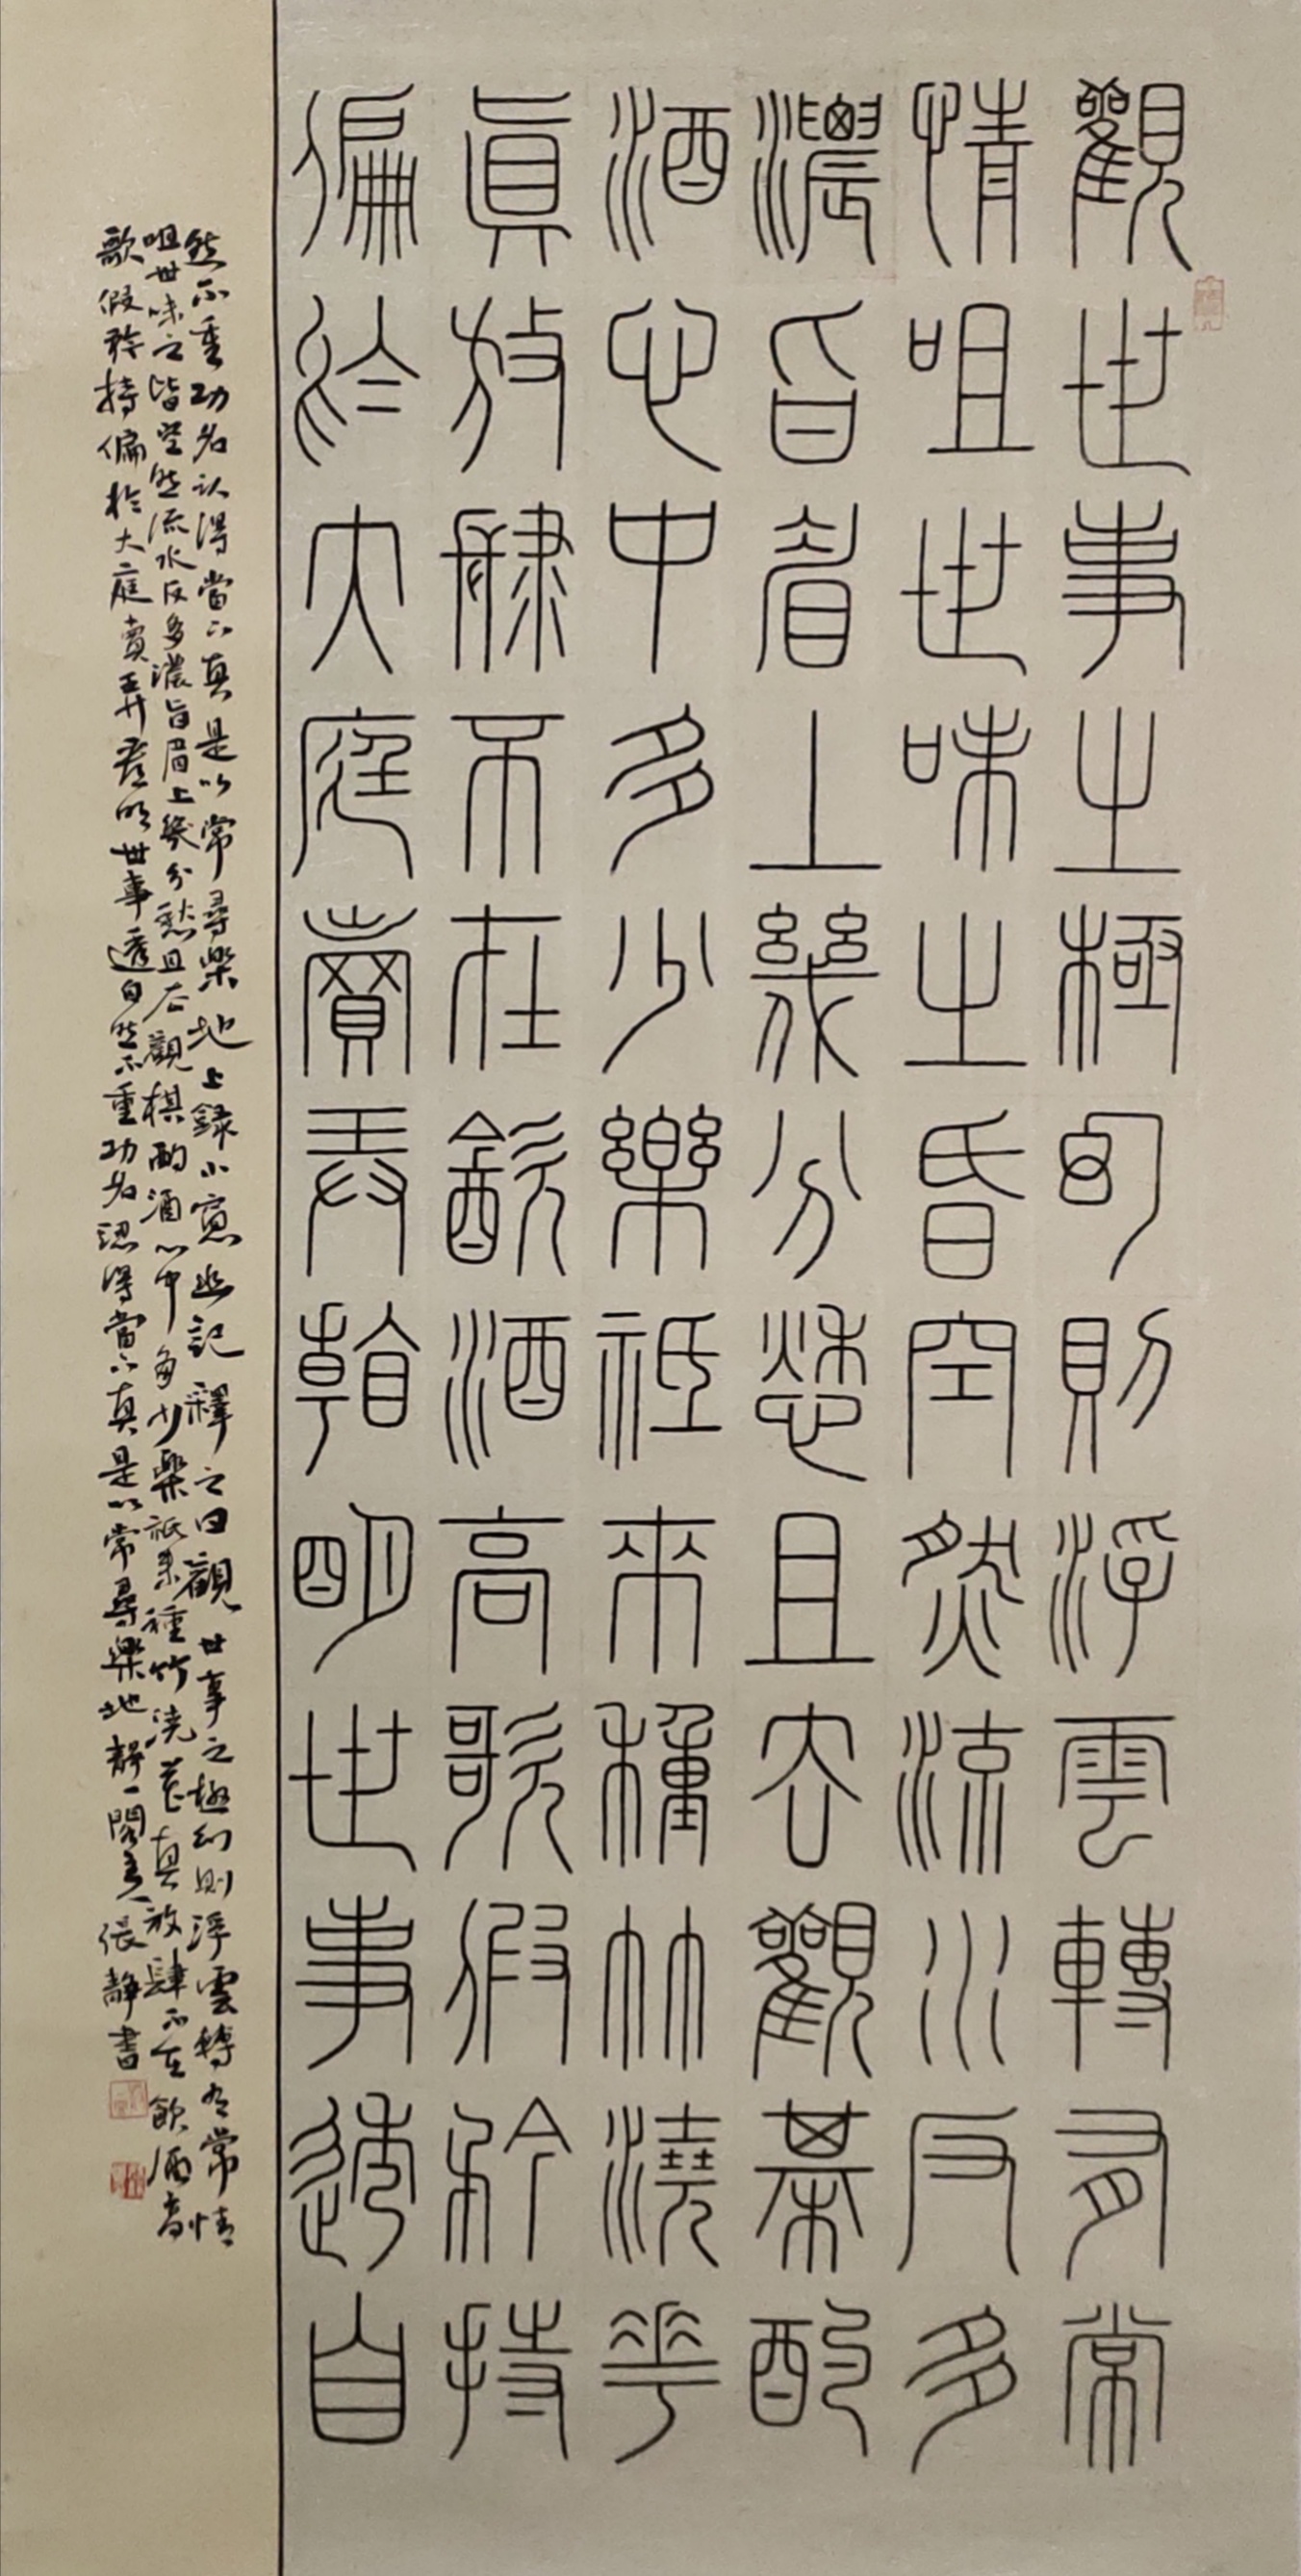 觀世事之極幻則浮雲轉有常
情咀世味之昏空然流水反多
濃旨眉上幾分愁且去觀棋酌
酒心中多少樂祗來種竹澆花
真放肆不在飲酒高歌假矜持
偏於大庭賣弄看明世事透自
然不重功名認得當下真是以常尋樂地上録小窗幽記釋之曰觀世事之極幻則浮雲轉有常情
咀世味之皆空然流水反多濃旨眉上幾分愁且去觀棋酌酒心中多少樂祗來種竹澆花真放肆不在飲酒高
歌假矜持偏於大庭賣弄看明世事透自然不重功名認得當下真是以常尋樂地靜一閣主人張靜書